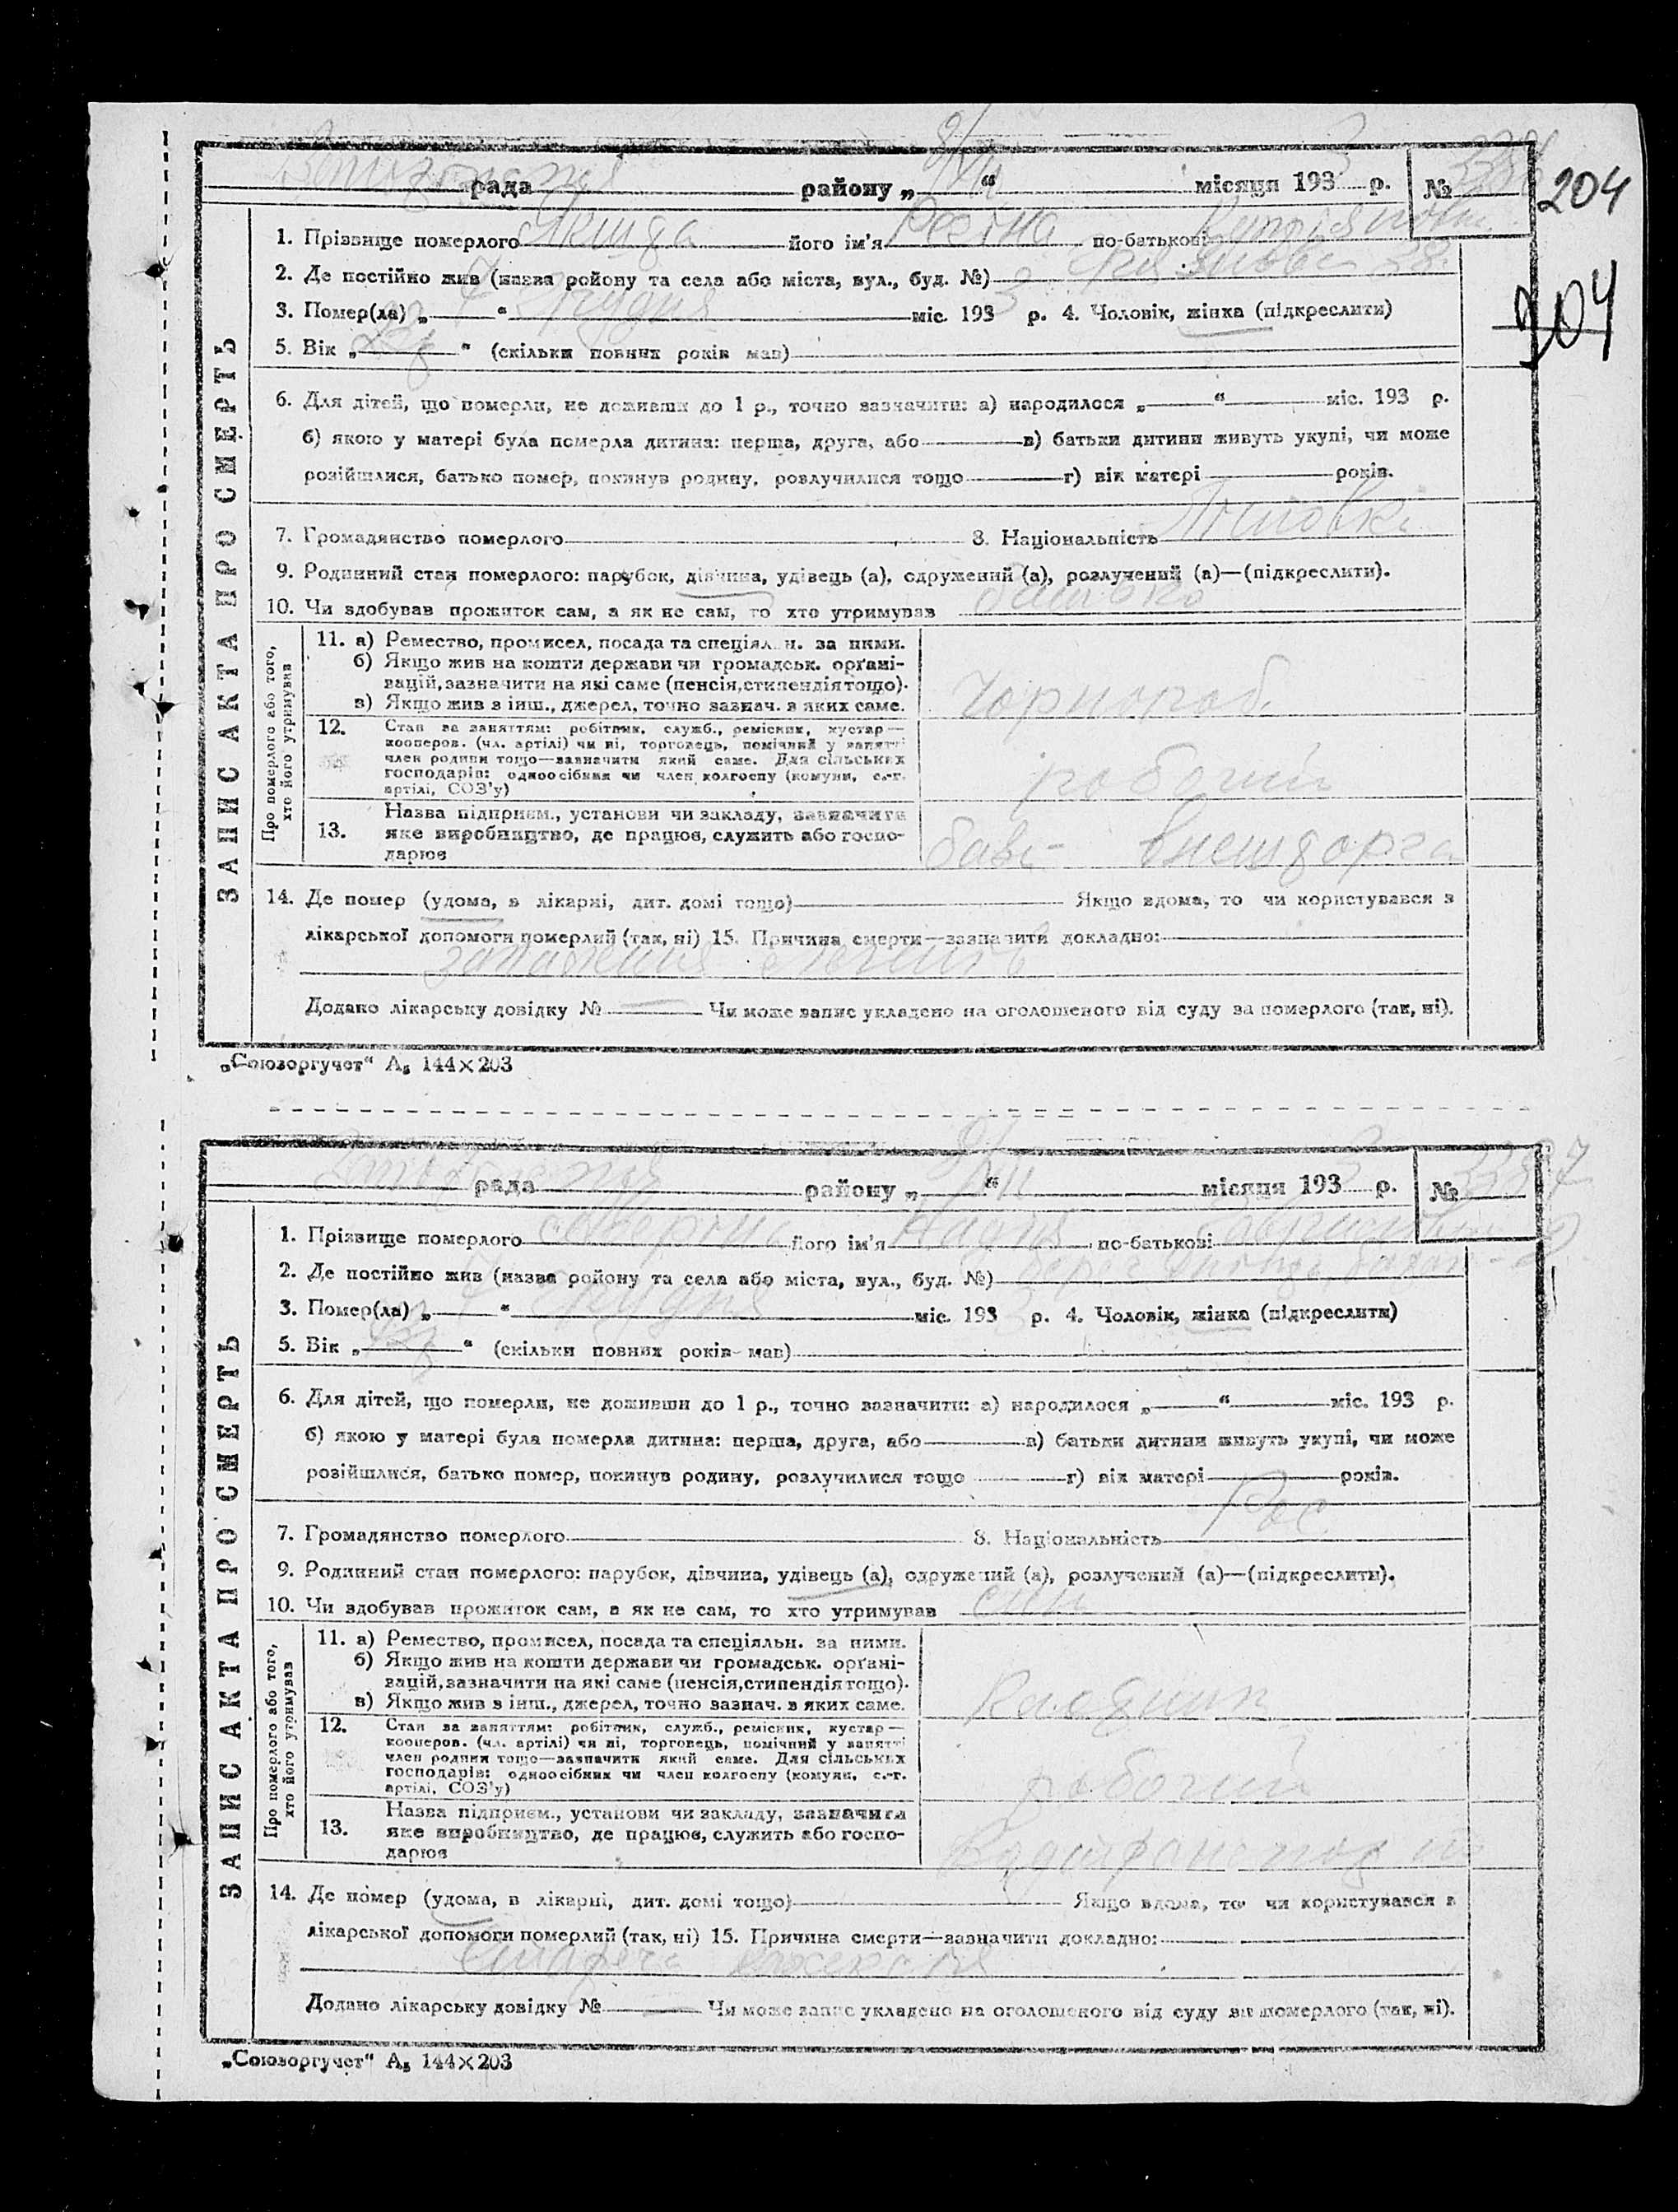 8/XII 3
рада району „ “ місяця 193 р. №
204
1. Прізвище померлого його ім'я по-батькові
2. Де постійно жив (назва ройону та села або міста, вул., буд. №)
3. Помер(ла) „ 7 “ грудня міс. 193 3 р. 4. Чоловік, жінка (підкреслити)
204
5. Вік „ “ (скільки повних років мав)
6. Для дітей, що померли, не доживши до 1 р., точно зазначити: а) народилося „ “ міс. 193 р.
б) якою у матері була померла дитина: перша, друга, або в) батьки дитини живуть укупі, чи може
розійшлися, батько помер, покинув родину, розлучилися тощо г) вік матері років.
7. Громадянство померлого 8. Національність
9. Родинний стан померлого: парубок, дівчина, удівець (а), одружений (а), розлучений (а)—(підкреслити).
10. Чи здобував прожиток сам, а як не сам, то хто утримував батько
ЗАПИС АКТА ПРО СМЕРТЬ
Про померлого або того, хто його утримував
11. а) Ремество, промисел, посада та спеціял н. за ними.
б) Якщо жив на кошти держави чи громадськ. органі-
зацій, зазначити на які саме (пенсія, стипендія тощо).
в) Якщо жив з інш., джерел, точно зазнач. з яких саме.
чорнороб.
12. Стан за заняттям: робітник, служб., ремісник, кустар—
кооперов. (чл. артілі) чи ні, торговець, помічний у занятті
член родини тощо—зазначити який саме. Для сільських
господарів: одноосібник чи член колгоспу (комуни, с.-г.
артілі, СОЗ'у)
робочий
13. Назва підприєм., установи чи закладу, зазначити
яке виробництво, де працює, служить або госпо-
дарює
14. Де помер (удома, в лікарні, дит. домі тощо) Якщо вдома, то чи користувався з
лікарської допомоги померлий (так, ні) 15. Причина смерти—зазначити докладно:
запалення легенів
Додано лікарську довідку № Чи може запис укладено на оголошеного від суду за померлого (так, ні).
„Союзоргучет“ А₅ 144×203
рада району „ “ місяця 193 3 р. № 3387
1. Прізвище померлого його ім'я Надія по-батькові
2. Де постійно жив (назва ройону та села або міста, вул., буд. №)
3. Помер(ла) „ 7 “ грудня міс. 193 р. 4. Чоловік, жінка (підкреслити)
5. Вік „ “ (скільки повних років мав)
6. Для дітей, що померли, не доживши до 1 р., точно зазначити: а) народилося „ “ міс. 193 р.
б) якою у матері була померла дитина: перша, друга, або в) батьки дитини живуть укупі, чи може
розійшлися, батько помер, покинув родину, розлучилися тощо г) вік матері років.
7. Громадянство померлого 8. Національність Рос
9. Родинний стан померлого: парубок, дівчина, удівець (а), одружений (а), розлучений (а)—(підкреслити).
10. Чи здобував прожиток сам, а як не сам, то хто утримував син
ЗАПИС АКТА ПРО СМЕРТЬ
Про померлого або того, хто його утримував
11. а) Ремество, промисел, посада та спеціяльн. за ними.
б) Якщо жив на кошти держави чи громадськ. органі-
зацій, зазначити на які саме (пенсія, стипендія тощо).
в) Якщо жив з інш., джерел, точно зазнач. з яких саме.
12. Стан за заняттям: робітник, служб., ремісник, кустар—
кооперов. (чл. артілі) чи ні, торговець, помічний у занятті
член родини тощо—зазначити який саме. Для сільських
господарів: одноосібник чи член колгоспу (комуни, с.-г.
артілі, СОЗ'у)
робочий
13. Назва підприєм., установи чи закладу, зазначити
яке виробництво, де працює, служить або госпо-
дарює
14. Де помер (удома, в лікарні, дит. домі тощо) Якщо вдома, то чи користувався з
лікарської допомоги померлий (так, ні) 15. Причина смерти—зазначити докладно:
Додано лікарську довідку № Чи може запис укладено на оголошеного від суду за померлого (так, ні).
„Союзоргучет“ А₅ 144×203